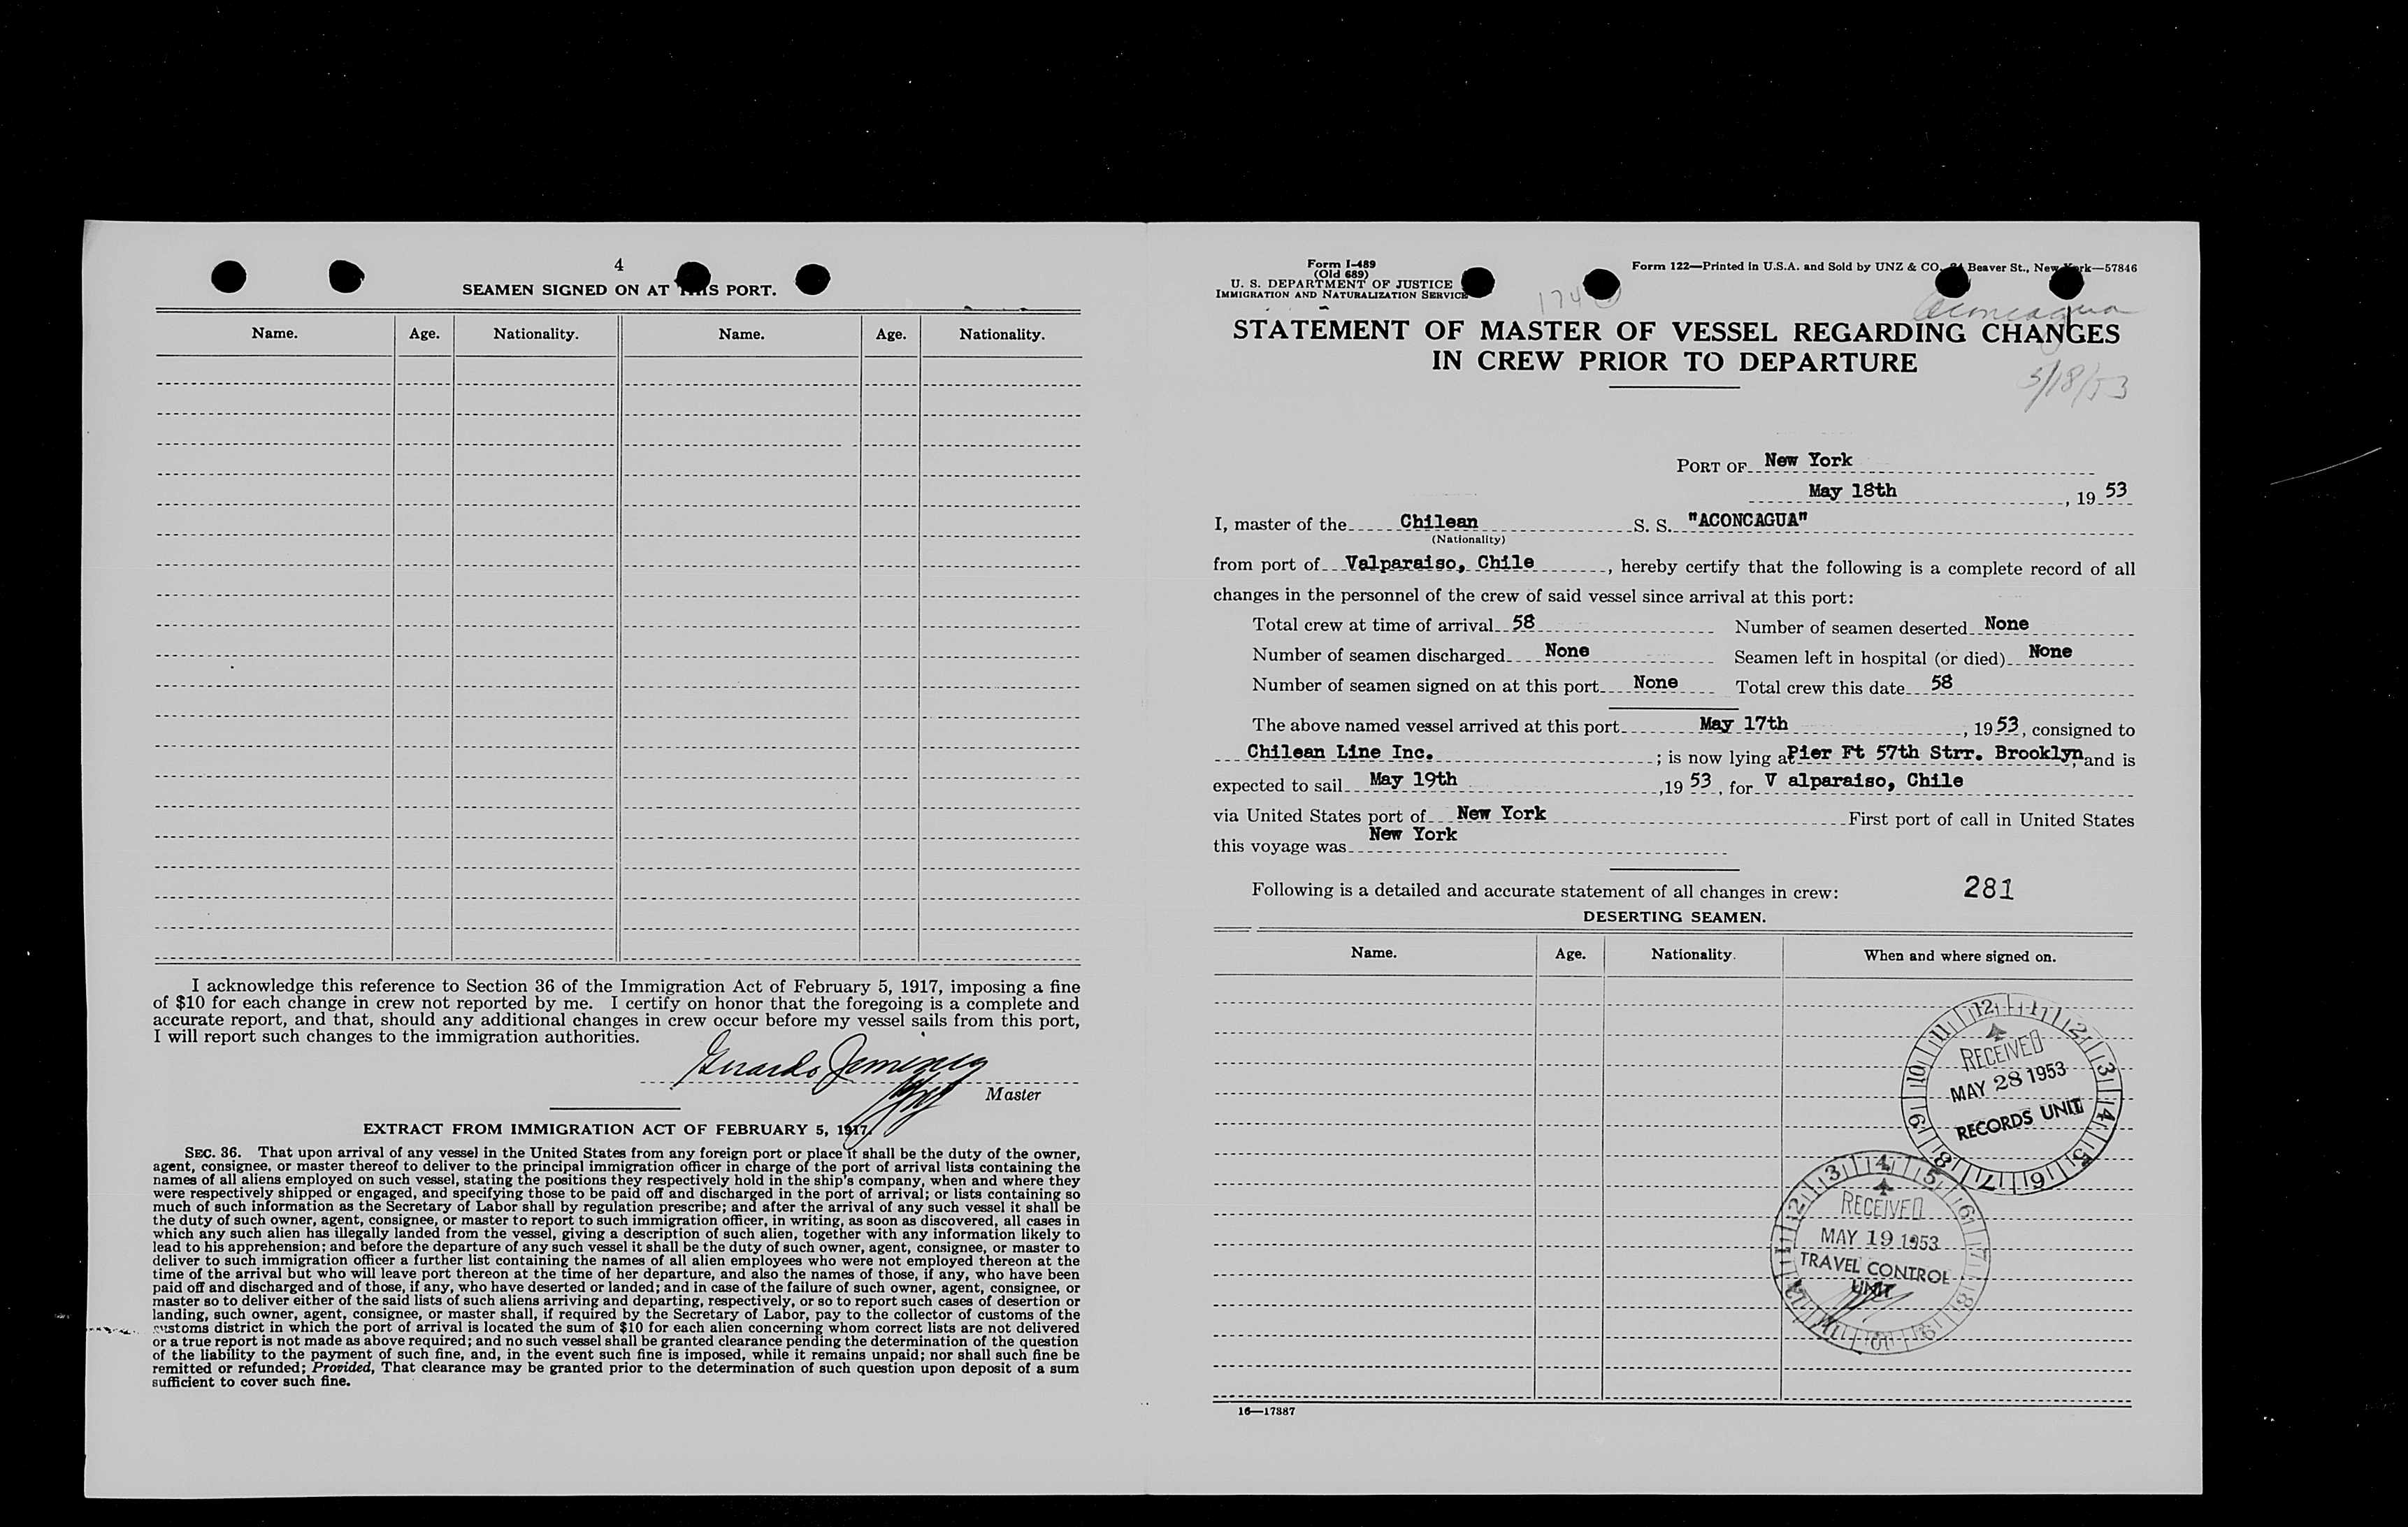 4
SEAMEN SIGNED ON AT THIS PORT.
Name. Age. Nationality. Name. Age. Nationality.
I acknowledge this reference to Section 36 of the Immigration Act of February 5, 1917, imposing a fine
of $10 for each change in crew not reported by me. I certify on honor that the foregoing is a complete and
accurate report, and that, should any additional changes in crew occur before my vessel sails from this port,
I will report such changes to the immigration authorities.
Master
EXTRACT FROM IMMIGRATION ACT OF FEBRUARY 5, 1917.
SEC. 36. That upon arrival of any vessel in the United States from any foreign port or place it shall be the duty of the owner,
agent, consignee, or master thereof to deliver to the principal immigration officer in charge of the port of arrival lists containing the
names of all aliens employed on such vessel, stating the positions they respectively hold in the ship's company, when and where they
were respectively shipped or engaged, and specifying those to be paid off and discharged in the port of arrival; or lists containing so
much of such information as the Secretary of Labor shall by regulation prescribe; and after the arrival of any such vessel it shall be
the duty of such owner, agent, consignee, or master to report to such immigration officer, in writing, as soon as discovered, all cases in
which any such alien has illegally landed from the vessel, giving a description of such alien, together with any information likely to
lead to his apprehension; and before the departure of any such vessel it shall be the duty of such owner, agent, consignee, or master to
deliver to such immigration officer a further list containing the names of all alien employees who were not employed thereon at the
time of the arrival but who will leave port thereon at the time of her departure, and also the names of those, if any, who have been
paid off and discharged and of those, if any, who have deserted or landed; and in case of the failure of such owner, agent, consignee, or
master so to deliver either of the said lists of such aliens arriving and departing, respectively, or so to report such cases of desertion or
landing, such owner, agent, consignee, or master shall, if required by the Secretary of Labor, pay to the collector of customs of the
customs district in which the port of arrival is located the sum of $10 for each alien concerning whom correct lists are not delivered
or a true report is not made as above required; and no such vessel shall be granted clearance pending the determination of the question
of the liability to the payment of such fine, and, in the event such fine is imposed, while it remains unpaid; nor shall such fine be
remitted or refunded; Provided, That clearance may be granted prior to the determination of such question upon deposit of a sum
sufficient to cover such fine.
Form I-489
(Old 689)
U. S. DEPARTMENT OF JUSTICE
IMMIGRATION AND NATURALIZATION SERVICE
Form 122—Printed in U.S.A. and Sold by UNZ & CO. Beaver St., New York—57846
174
Aconcagua
STATEMENT OF MASTER OF VESSEL REGARDING CHANGES
IN CREW PRIOR TO DEPARTURE
5/18/53
PORT OF New York
May 18th, 1953
I, master of the Chilean S. S. "ACONCAGUA"
(Nationality)
from port of Valparaiso, Chile, hereby certify that the following is a complete record of all
changes in the personnel of the crew of said vessel since arrival at this port:
Total crew at time of arrival 58 Number of seamen deserted None
Number of seamen discharged None Seamen left in hospital (or died) None
Number of seamen signed on at this port None Total crew this date 58
The above named vessel arrived at this port May 17th, 1953, consigned to
Chilean Line Inc.; is now lying at Pier Ft 57th Strr. Brooklyn, and is
expected to sail May 19th, 19 53, for V alparaiso, Chile
via United States port of New York First port of call in United States
this voyage was New York
Following is a detailed and accurate statement of all changes in crew: 281
DESERTING SEAMEN.
Name. Age. Nationality. When and where signed on.
12 1 2 3 4 5 6 7 8 9 10 11
RECEIVED
MAY 28 1953
RECORDS UNIT
12 1 2 3 4 5 6 7 8 9 10 11
RECEIVED
MAY 19 1953
TRAVEL CONTROL
UNIT
16—17387